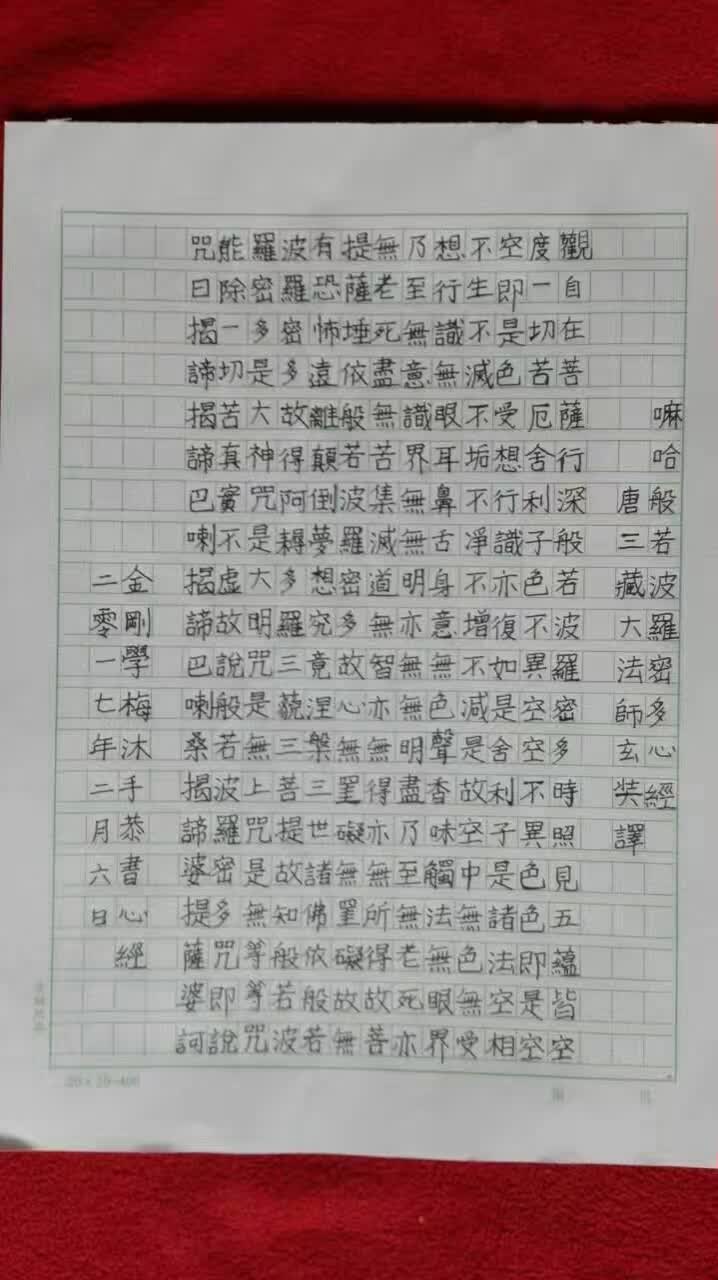 嘛哈般若波羅密多心經
唐三藏大法師玄奘譯
觀自在菩薩行深般若波羅密多時照見五蘊皆空
度一切苦厄舍利子色不異空空不異色色即是空
空即是色受想行識亦復如是舍利子是諸法空相
不生不滅不垢不凈不增不減是故空中無色無受
想行識無眼耳鼻舌身意無色聲香味觸法無眼界
乃至無意識界無明亦無無明盡乃至無老死亦
無老死盡無苦集滅道無智亦無得亦無所得故菩
提薩埵依般若波羅密多故心無罣礙無罣礙故無
有恐怖遠離顛倒夢想究竟涅槃三世諸佛依般若
波羅密多故得阿耨多羅三藐三菩提故知般若波
羅密多是大神咒是大明咒是無上咒是無等等咒
能除一切苦真實不虛故說般若波羅密多咒即說
咒曰揭諦揭諦巴喇揭諦巴喇桑揭諦婆提薩婆訶
金剛學梅沐手恭書心經
二零一七年二月六日